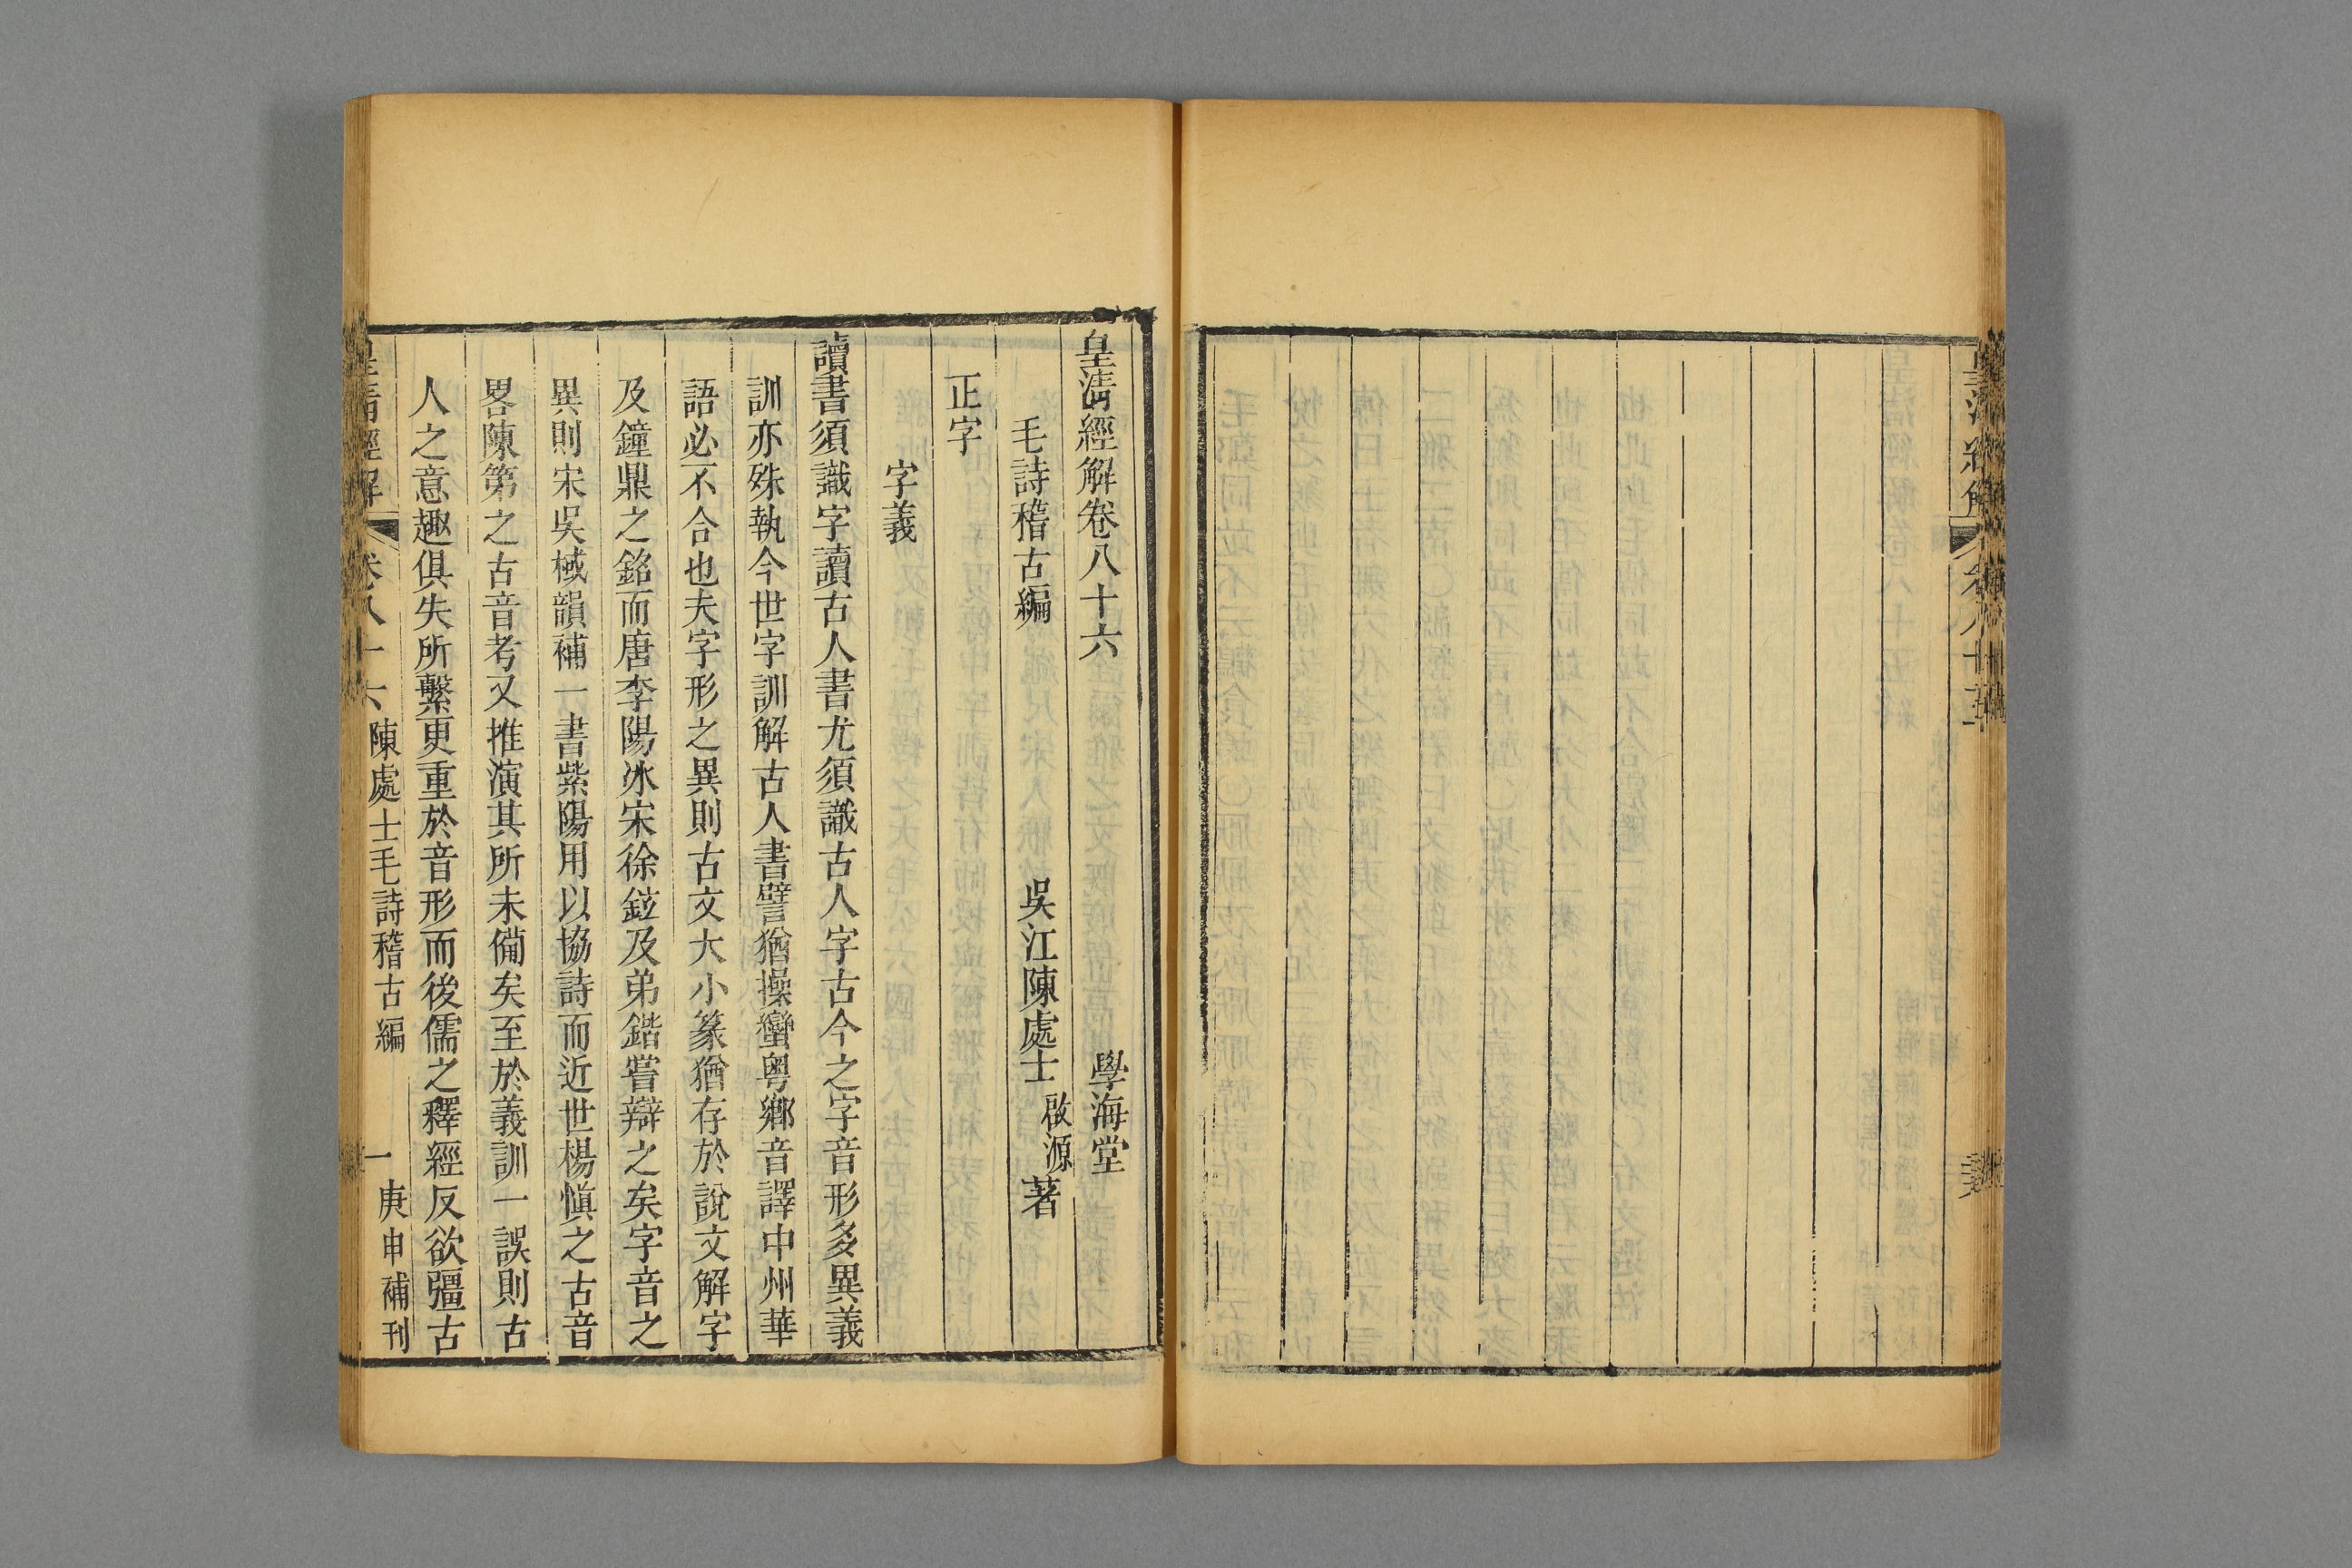 皇清經解卷八十六
學海堂
毛詩稽古編
吳江陳處士啟源著
正字
字義
讀書須識字讀古人書尤須識古人字古今之字音形多異義
訓亦殊執今世字訓解古人書譬猶操蠻粵鄉音譯中州華
語必不合也夫字形之異則古文大小篆猶存於說文解字
及鐘鼎之銘而唐李陽冰宋徐鉉及弟鍇嘗辯之矣字音之
異則宋吳棫韻補一書紫陽用以協詩而近世楊愼之古音
畧陳第之古音考又推演其所未備矣至於義訓一誤則古
人之意趣俱失所繫更重於音形而後儒之釋經反欲彊古
皇清經解
卷八十六
陳處士毛詩稽古編
一
庚申補刊